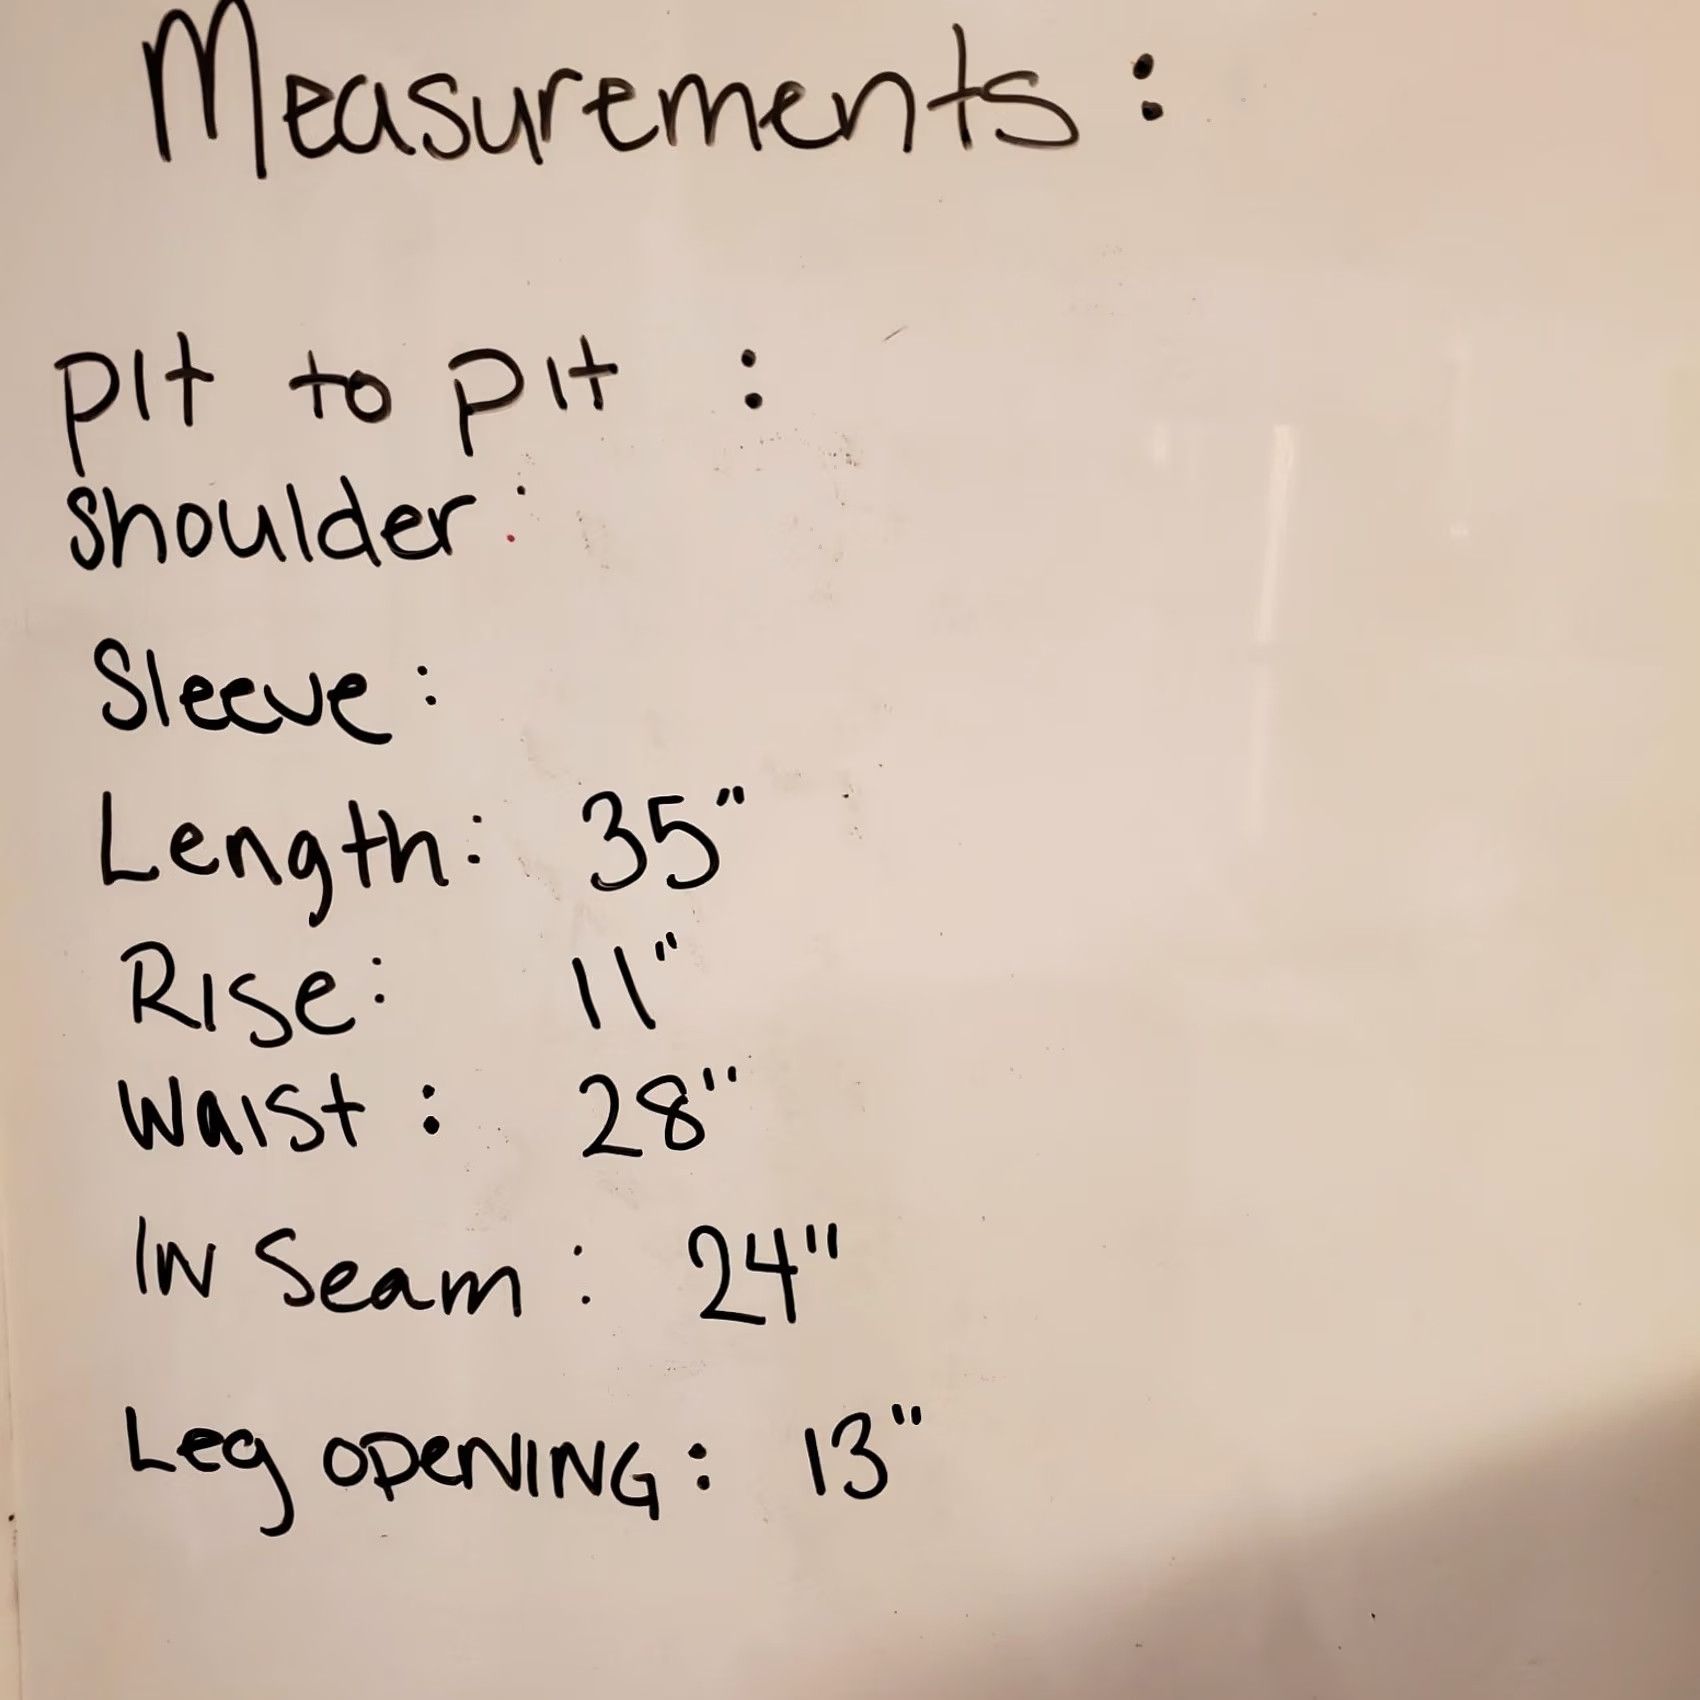 Measurements :
pit to pit :
shoulder :
Sleeve :
Length : 35"
Rise : 11"
Waist : 28"
IN Seam : 24"
Leg OPENING : 13"